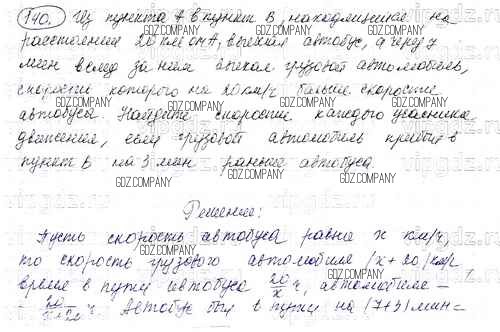 140. Из пункта А в пункт В, находящийся на
расстоянии 20 км от А, выехал автобус, а через 7
мин вслед за ним выехал грузовой автомобиль,
скорость которого на 20 км/ч больше скорости
автобуса. Найдите скорости каждого участника
движения, если грузовой автомобиль прибыл в
пункт В на 3 мин раньше автобуса.
Решение:
Пусть скорость автобуса равна x км/ч,
то скорость грузового автомобиля (x+20) км/ч
время в пути автобуса 20/x ч, автомобиля –
20/x+20 ч. Автобус был в пути на (7+3) мин =
GDZ.COMPANY
vipgdz.ru